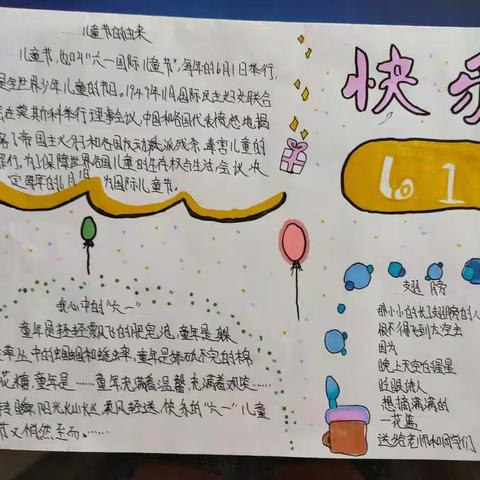 儿童节的由来
儿童节,也叫"六一国际儿童节",每年的6月1日举行,
是全世界少年儿童的节日。1949年11月国际民主妇女联合
在莫斯科举行理事会议,中国和各国代表愤怒地揭
露了帝国主义分子和各国反动派残杀、毒害儿童的
罪行。为了保障世界各国儿童的生存权与生活,会议决
定每年的6月1日为国际儿童节。
快乐
6.1
我心中的"六一"
童年是轻轻飘飞的肥皂泡,童年是躲
在草丛中的蝈蝈和蟋蟀,童年是舔不完的棉
花糖,童年是……童年充满着温馨充满着欢笑……
阳光灿烂,熏风轻送,快乐的"六一"儿童
节又悄然至而。……
翅膀
那小小的长了翅膀的人
恨不得飞到太空去
因为
晚上天空的星星
眨眼诱人
想摘满满的
一花篮
送给老师和同学们